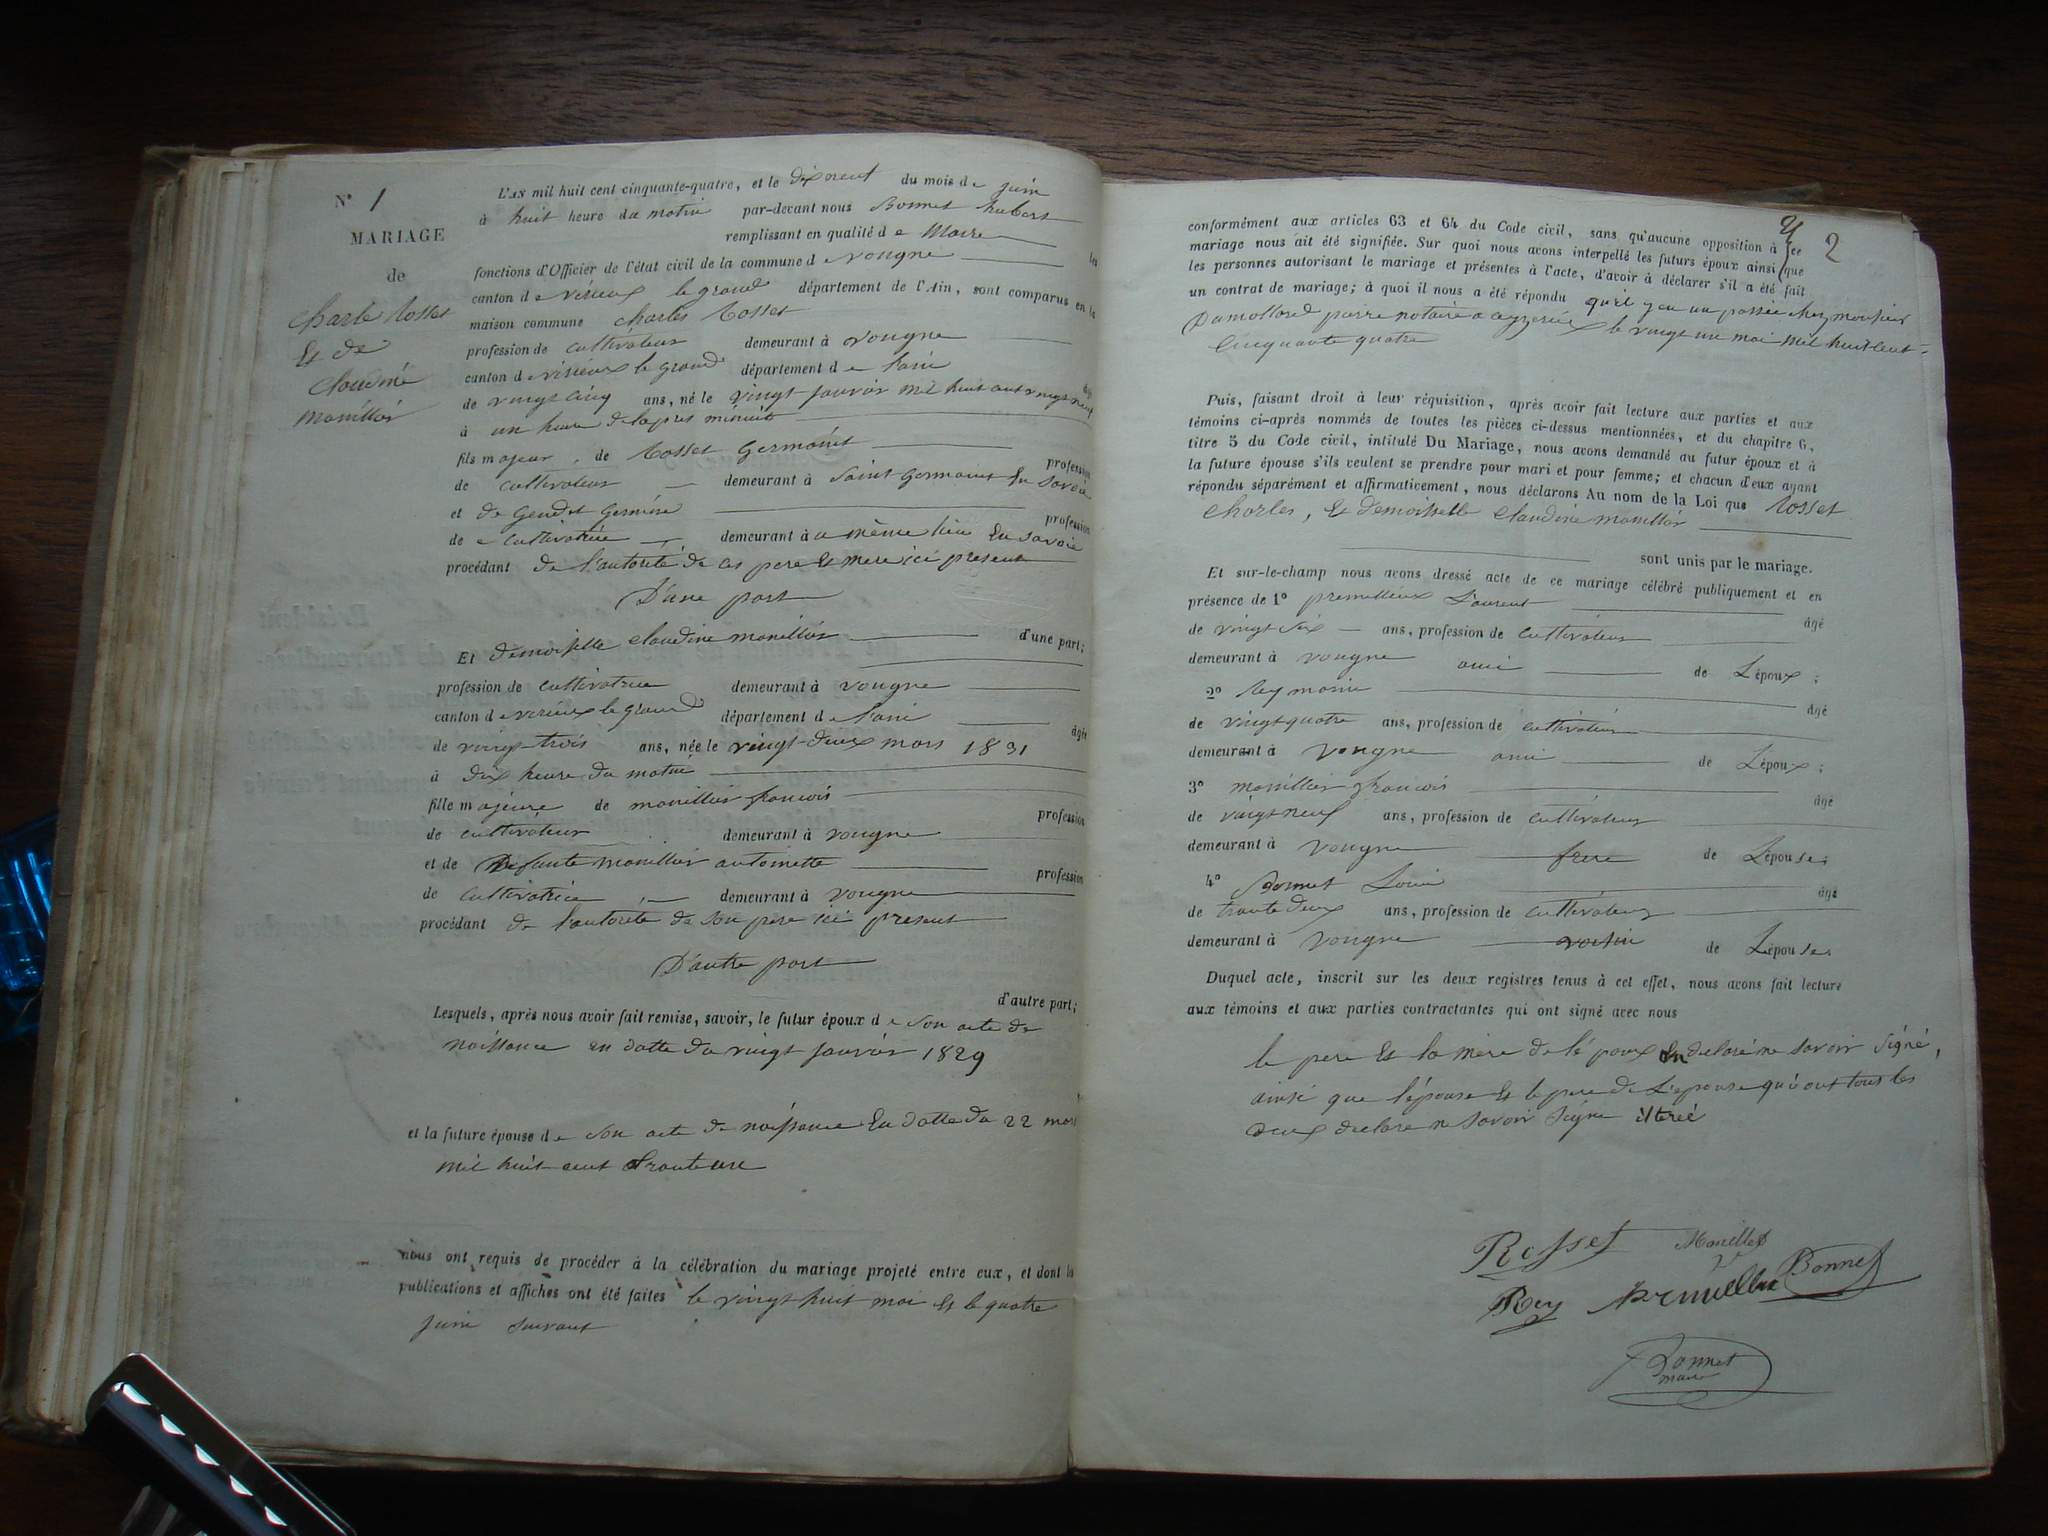 N° 1
MARIAGE
de
Charle Rosset
Et de
Claudine
Monillier
L'AN mil huit cent cinquante-quatre, et le dix neuf du mois de juin
à huit heure du matin par-devant nous Bonnet hubert
remplissant en qualité de Maire les
fonctions d'Officier de l'état civil de la commune de vongne
canton de virieux le grand département de l'Ain, sont comparus en la
maison commune Charles Rosset
profession de cultivateur demeurant à vongne
canton de virieux le grand département de l'ain
âgé
de vingt cinq ans, né le vingt janvier mil huit cent vingt neuf
à un heure de lapres minuit
fils majeur de Rosset Germain
profession
de cultivateur demeurant à Saint Germain En Savoie
et de Gendet Germine
profession
de cultivatrice demeurant à a même lieu En Savoie
procédant de l'autorité de ces pere Et mere ici present
D'une part
d'une part;
Et demoiselle Claudine monillier
profession de cultivatrice demeurant à vongne
canton de virieux le grand département de l'ain
âgée
de vingt-trois ans, née le vingt-deux mars 1831
à dix heure du matin
fille majeure de monillier francois
profession
de cultivateur demeurant à vongne
et de Defunte monillier antoinette
profession
de cultivatrice demeurant à vongne
procédant de l'autorité de son pere ici present
D'autre part
d'autre part;
Lesquels, après nous avoir fait remise, savoir, le futur époux de son acte de
naissance en datte du vingt janvier 1829
et la future épouse de son acte de naissance En datte du 22 mars
mil huit cent trente une
nous ont requis de procéder à la célébration du mariage projeté entre eux, et dont les
publications et affiches ont été faites le vingt huit mai Et le quatre
juin suivant
2
conformément aux articles 63 et 64 du Code civil, sans qu'aucune opposition à ce
mariage nous ait été signifiée. Sur quoi nous avons interpellé les futurs époux ainsi que
les personnes autorisant le mariage et présentes à l'acte, d'avoir à déclarer s'il a été fait
un contrat de mariage; à quoi il nous a été répondu quil y en un passée chez monsieur
Dumollard pierre notaire a ceyzerieu le vingt un mai mil huit cent
Cinquante quatre
Puis, faisant droit à leur réquisition, après avoir fait lecture aux parties et aux
témoins ci-après nommés de toutes les pièces ci-dessus mentionnées, et du chapitre 6,
titre 5 du Code civil, intitulé Du Mariage, nous avons demandé au futur époux et à
la future épouse s'ils veulent se prendre pour mari et pour femme; et chacun d'eux ayant
répondu séparément et affirmativement, nous déclarons Au nom de la Loi que Rosset
Charles, Et demoiselle Claudine monillier
sont unis par le mariage.
Et sur-le-champ nous avons dressé acte de ce mariage célébré publiquement et en
présence de 1° premillieux Laurent
âgé
de vingt six ans, profession de cultivateur
demeurant à vongne ami de L'époux;
2° Rey marin
âgé
de vingt quatre ans, profession de cultivateur
demeurant à vongne ami de L'époux;
3° monillier francois
âgé
de vingt neuf ans, profession de cultivateur
demeurant à vongne frere de L'épouse;
4° Bonnet Louis
âgé
de trante deux ans, profession de cultivateur
demeurant à vongne voisin de L'épouse
Duquel acte, inscrit sur les deux registres tenus à cet effet, nous avons fait lecture
aux témoins et aux parties contractantes qui ont signé avec nous
le pere Et la mere de l'époux on déclaré ne savoir signé,
ainsi que l'épouse Et le pere de L'epouse qui ont tous les
deux declare ne savoir signe
Rosset Monillet
Rey Premillieux Bonnet
Bonnet
maire